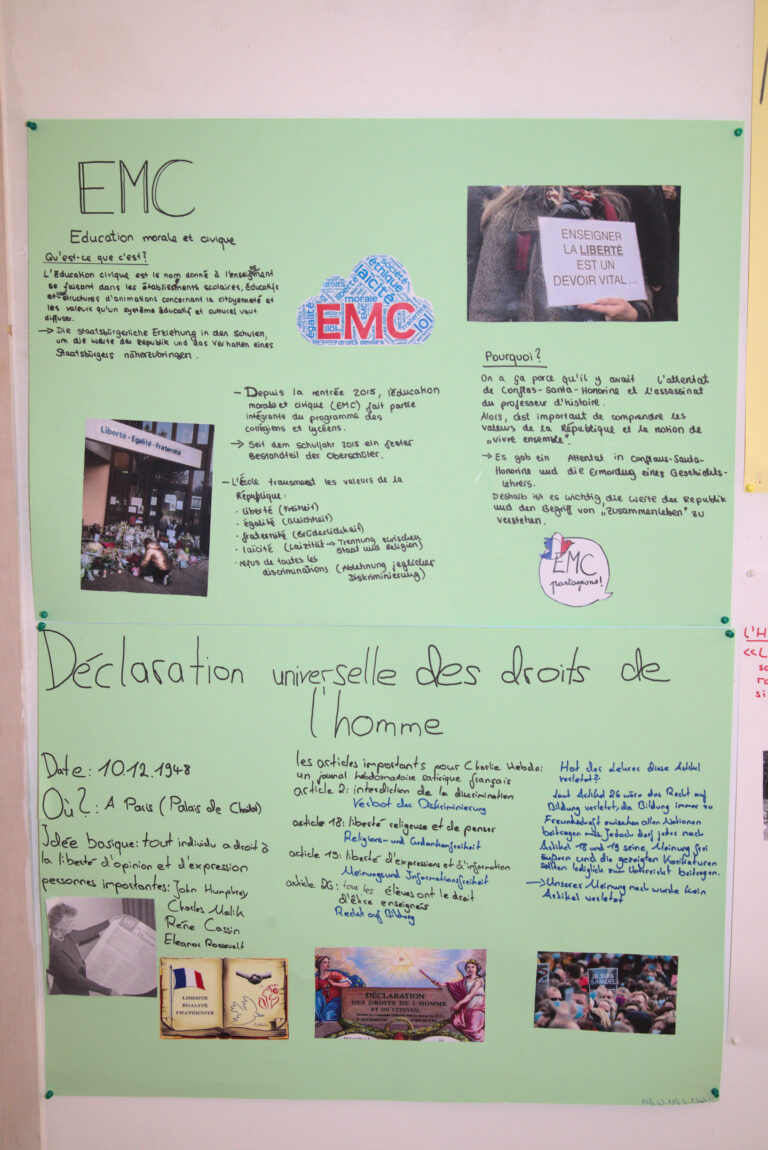 EMC
Education morale et civique
Qu'est-ce que c'est?
L'Éducation civique est le nom donné à l'enseignement
se faisant dans les établissments scolaires, éducatifs
et structures d'animations concernant la citoyenneté et
les valeurs qu'un système éducatif et culturel veut
diffuser.
→ Die staatsbürgerliche Erziehung in den Schulen,
um die Werte der Republik und das Verhalten eines
Staatsbürgers näherzubringen.
société
éthnique
laïcité
droits
liberté
morale
égalité
EMC
loi
droits devoirs
ENSEIGNER
LA LIBERTÉ
EST UN
DEVOIR VITAL ...
Pourquoi?
On a ça parce qu'il y avait l'attentat
de Conflas-Santa-Honorine et l'assassinat
du professeur d'histoire.
Alors, c'est important de comprendre les
valeurs de la République et la notion de
"vivre ensemble".
→ Es gab ein Attentat in Conflaus-Santa-
Honorine und die Ermordung eines Geschichts-
lehrers.
Deshalb ist es wichtig, die Werte der Republik
und den Begriff von „Zusammenleben" zu
verstehen.
EMC
partageons!
– Depuis la rentrée 2015, l'Éducation
morale et civique (EMC) fait partie
intégrante du programme des
collégiens et lycéens.
→ Seit dem Schuljahr 2015 ein fester
Bestandteil der Oberschüler.
– L'École transment les valeurs de la
République:
· liberté (Freiheit)
· égalité (Gleichheit)
· fraternité (Brüderlichkeit)
· laïcité (Laizität → Trennung zwischen
Staat und Religion)
· refus de toutes les
discriminations (Ablehnung jeglicher
Diskriminierung)
Liberté - Egalité - Fraternité
Déclaration universelle des droits de
l'homme
Date: 10.12.1948
Où?: A Paris (Palais de Chaillot)
Idée basique: tout individu a droit à
la liberté d'opinion et d'expression
personnes importantes: John Humphrey
Charles Malik
Réne Cassin
Eleanor Roosevelt
les articles importants pour Charlie Hebdo:
un journal hebdomataire satirique français
article 2: interdiction de la discrimination
Verbot der Diskriminierung
article 18: liberté religieuse et de penser
Religions- und Gedankenfreiheit
article 19: liberté d'expressions et d'information
Meinungs und Informationsfreiheit
article 26: tous les élèves ont le droit
d'être enseignés
Recht auf Bildung
Hat der Lehrer diese Artikel
verletzt?
Laut Artikel 26 wäre das Recht auf
Bildung verletzt, da Bildung immer zu
Freundschaft zwischen allen Nationen
beitragen muss. Jedoch darf jeder nach
Artikel 18 und 19 seine Meinung frei
äußern und die gezeigten Karikaturen
sollten lediglich zum Unterricht beitragen.
→ Unserer Meinung nach wurde kein
Artikel verletzt
LIBERTÉ
ÉGALITÉ
FRATERNITÉ
DÉCLARATION
DES DROITS DE L'HOMME
ET DU CITOYEN,
JE SUIS
SAMUEL
L'H
«L